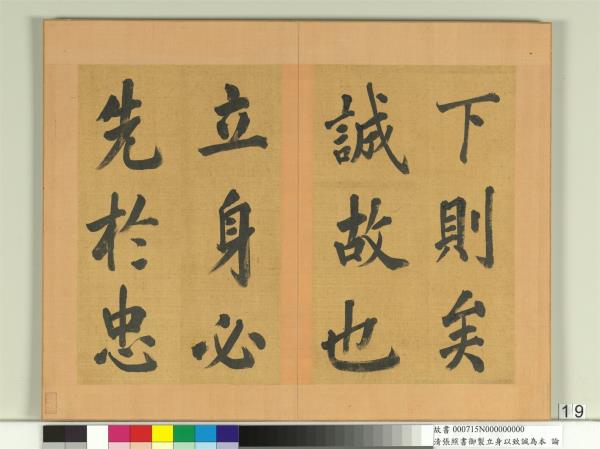 下則矣
誠故也
立身必
先於忠
19
故書 000715N000000000
清張照書御製立身以致誠為本 論